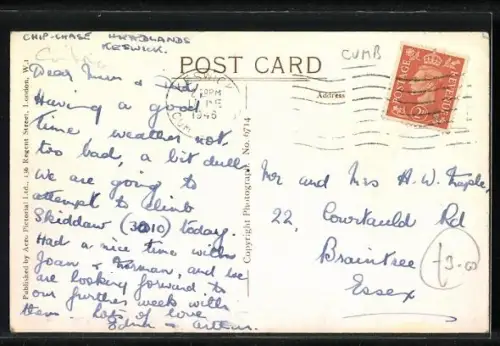 CHIP-CHASE HEADLANDS
KESWICK.
CUMB
POST CARD
Address
KESWICK
PM
1948
POSTAGE REVENUE
Dear Mum & Dad
Having a good
time weather not
too bad, a bit dull
we are going to
attempt to climb
Skiddaw (3010) today.
Had a nice time with
Joan & Norman, and we
are looking forward to
our further week with
them. Lots of love
Arthur.
Mr and Mrs H. W.
22, Courtauld Rd
Braintree
Essex
£3-00
Published by Aero Pictorial Ltd., 136 Regent Street, London, W.1
Copyright Photograph No. 6714